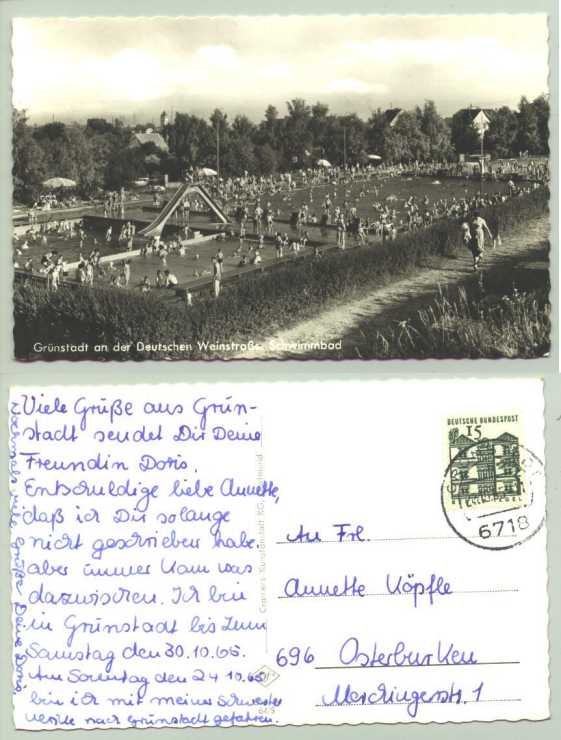 Grünstadt an der Deutschen Weinstraße, Schwimmbad
Viele Grüße aus Grün-
stadt sendet Dir Deine
Freundin Doris.
Entschuldige liebe Annette,
daß ich Dir solange
nicht geschrieben habe,
aber immer kam was
dazwischen. Ich bin
in Grünstadt bis zum
Samstag den 30.10.65.
Am Sonntag den 24.10.65
bin ich mit meiner Schwester
nach Grünstadt gefahren.
Nochmals viele Grüße Deine Doris
Cramers Kunstanstalt KG, Dortmund
DEUTSCHE BUNDESPOST
15
6718
An Frl.
Annette Köpfle
696 Osterburken